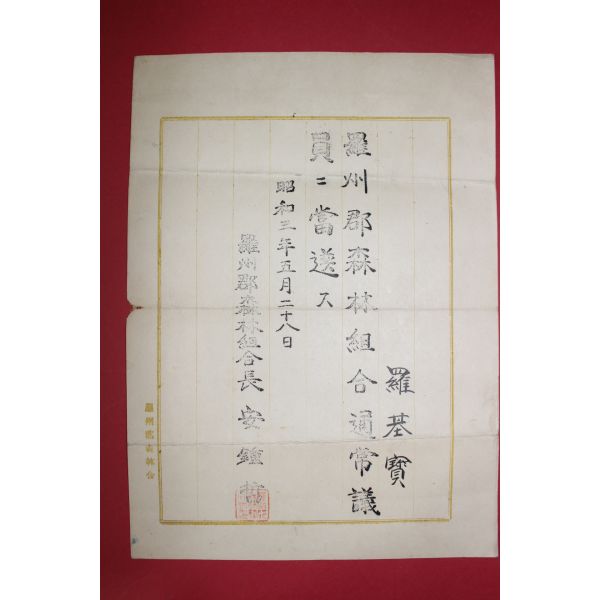 羅基寶
羅州郡森林組合通常議
員ニ當選ス
昭和三年五月二十八日
羅州郡森林組合長 安鍾